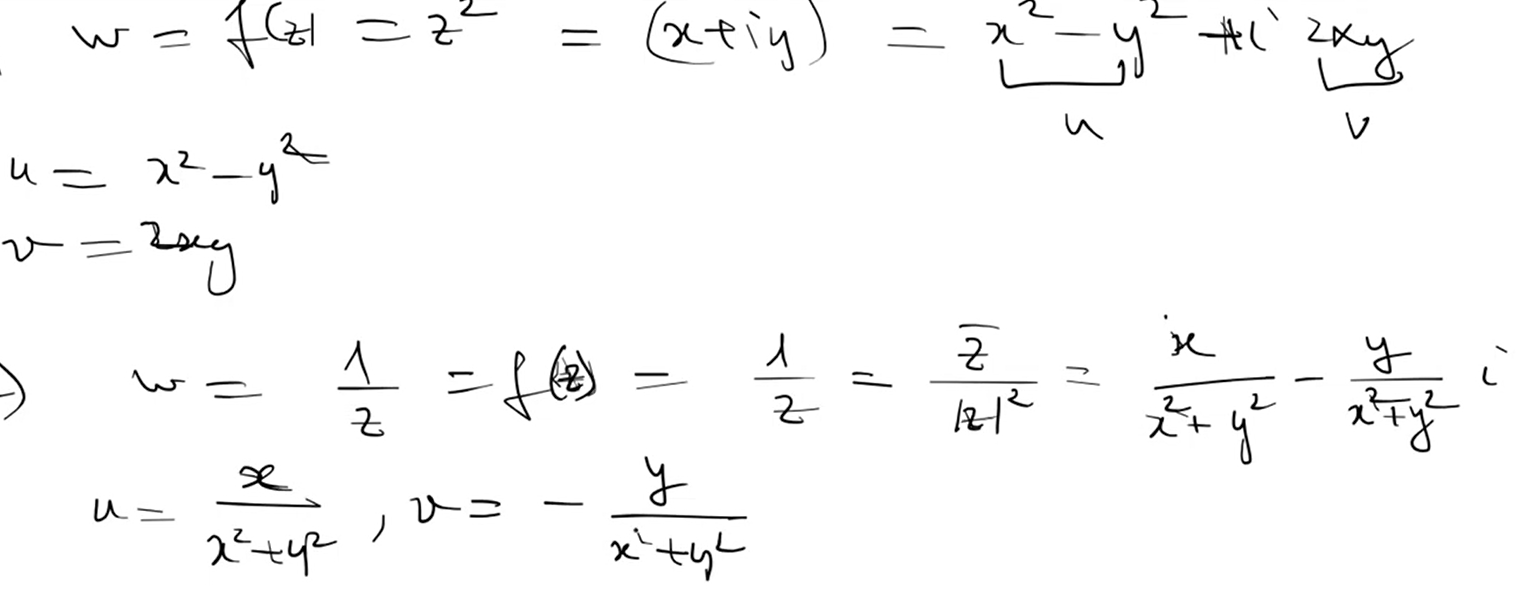 w = f(z) = z² = (x+iy) = x² − y² + i 2xy
u v
u = x² − y²
v = 2xy
) w = 1/z = f(z) = 1/z = z̄/|z|² = x/(x²+y²) − y/(x²+y²) i
u = x/(x²+y²) , v = − y/(x²+y²)